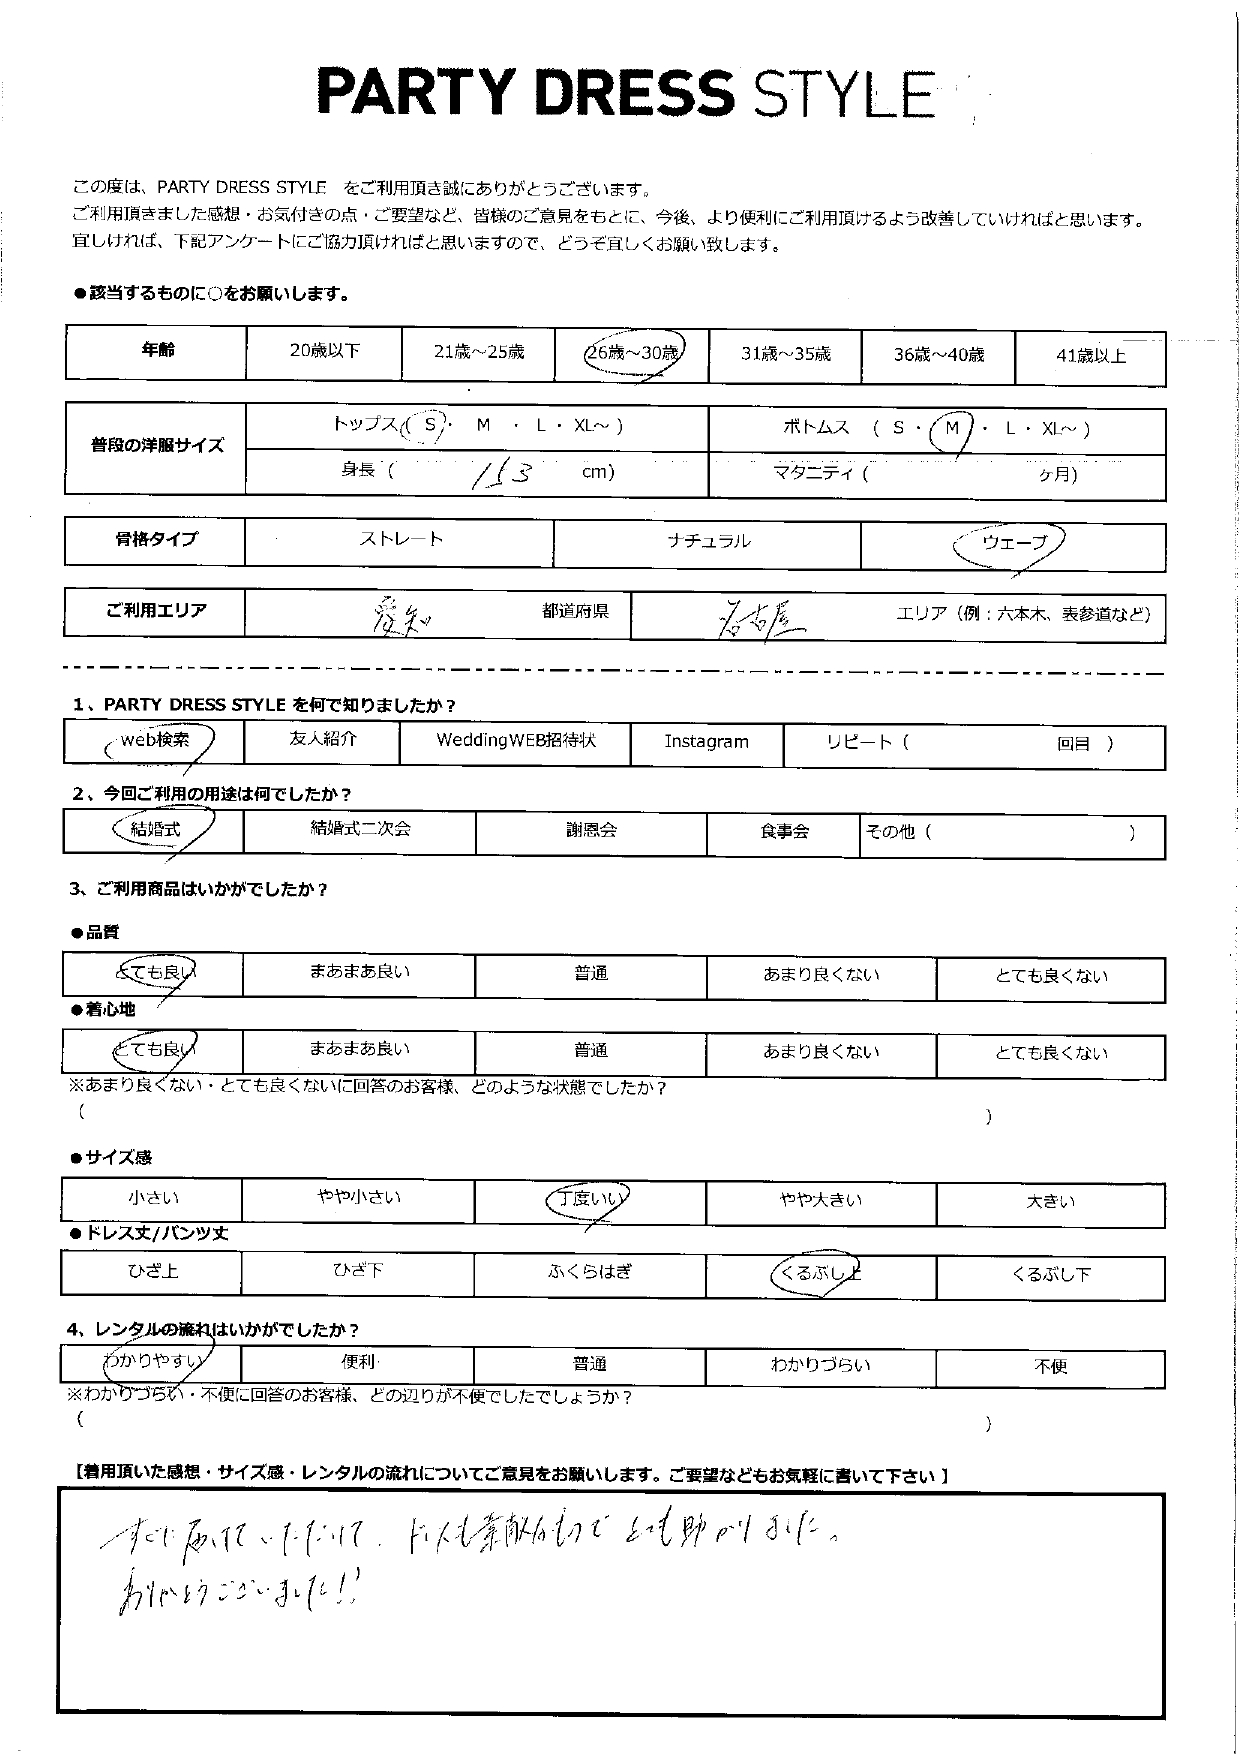 PARTY DRESS STYLE
この度は、PARTY DRESS STYLE をご利用頂き誠にありがとうございます。
ご利用頂きました感想・お気付きの点・ご要望など、皆様のご意見をもとに、今後、より便利にご利用頂けるよう改善していければと思います。
宜しければ、下記アンケートにご協力頂ければと思いますので、どうぞ宜しくお願い致します。
●該当するものに○をお願いします。
年齢 20歳以下 21歳～25歳 26歳～30歳 31歳～35歳 36歳～40歳 41歳以上
普段の洋服サイズ トップス ( S ・ M ・ L ・ XL～ ) ボトムス ( S ・ M ・ L ・ XL～ )
身長 ( 153 cm) マタニティ ( ヶ月)
骨格タイプ ストレート ナチュラル ウェーブ
ご利用エリア 愛知 都道府県 名古屋 エリア（例：六本木、表参道など）
1、PARTY DRESS STYLE を何で知りましたか？
web検索 友人紹介 WeddingWEB招待状 Instagram リピート ( 回目 )
2、今回ご利用の用途は何でしたか？
結婚式 結婚式二次会 謝恩会 食事会 その他 ( )
3、ご利用商品はいかがでしたか？
●品質
とても良い まあまあ良い 普通 あまり良くない とても良くない
●着心地
とても良い まあまあ良い 普通 あまり良くない とても良くない
※あまり良くない・とても良くないに回答のお客様、どのような状態でしたか？
( )
●サイズ感
小さい やや小さい 丁度いい やや大きい 大きい
●ドレス丈/パンツ丈
ひざ上 ひざ下 ふくらはぎ くるぶし上 くるぶし下
4、レンタルの流れはいかがでしたか？
わかりやすい 便利 普通 わかりづらい 不便
※わかりづらい・不便に回答のお客様、どの辺りが不便でしたでしょうか？
( )
【着用頂いた感想・サイズ感・レンタルの流れについてご意見をお願いします。ご要望などもお気軽に書いて下さい】
すぐに届けていただけて、ドレスも素敵なもので とても助かりました。
ありがとうございました!!